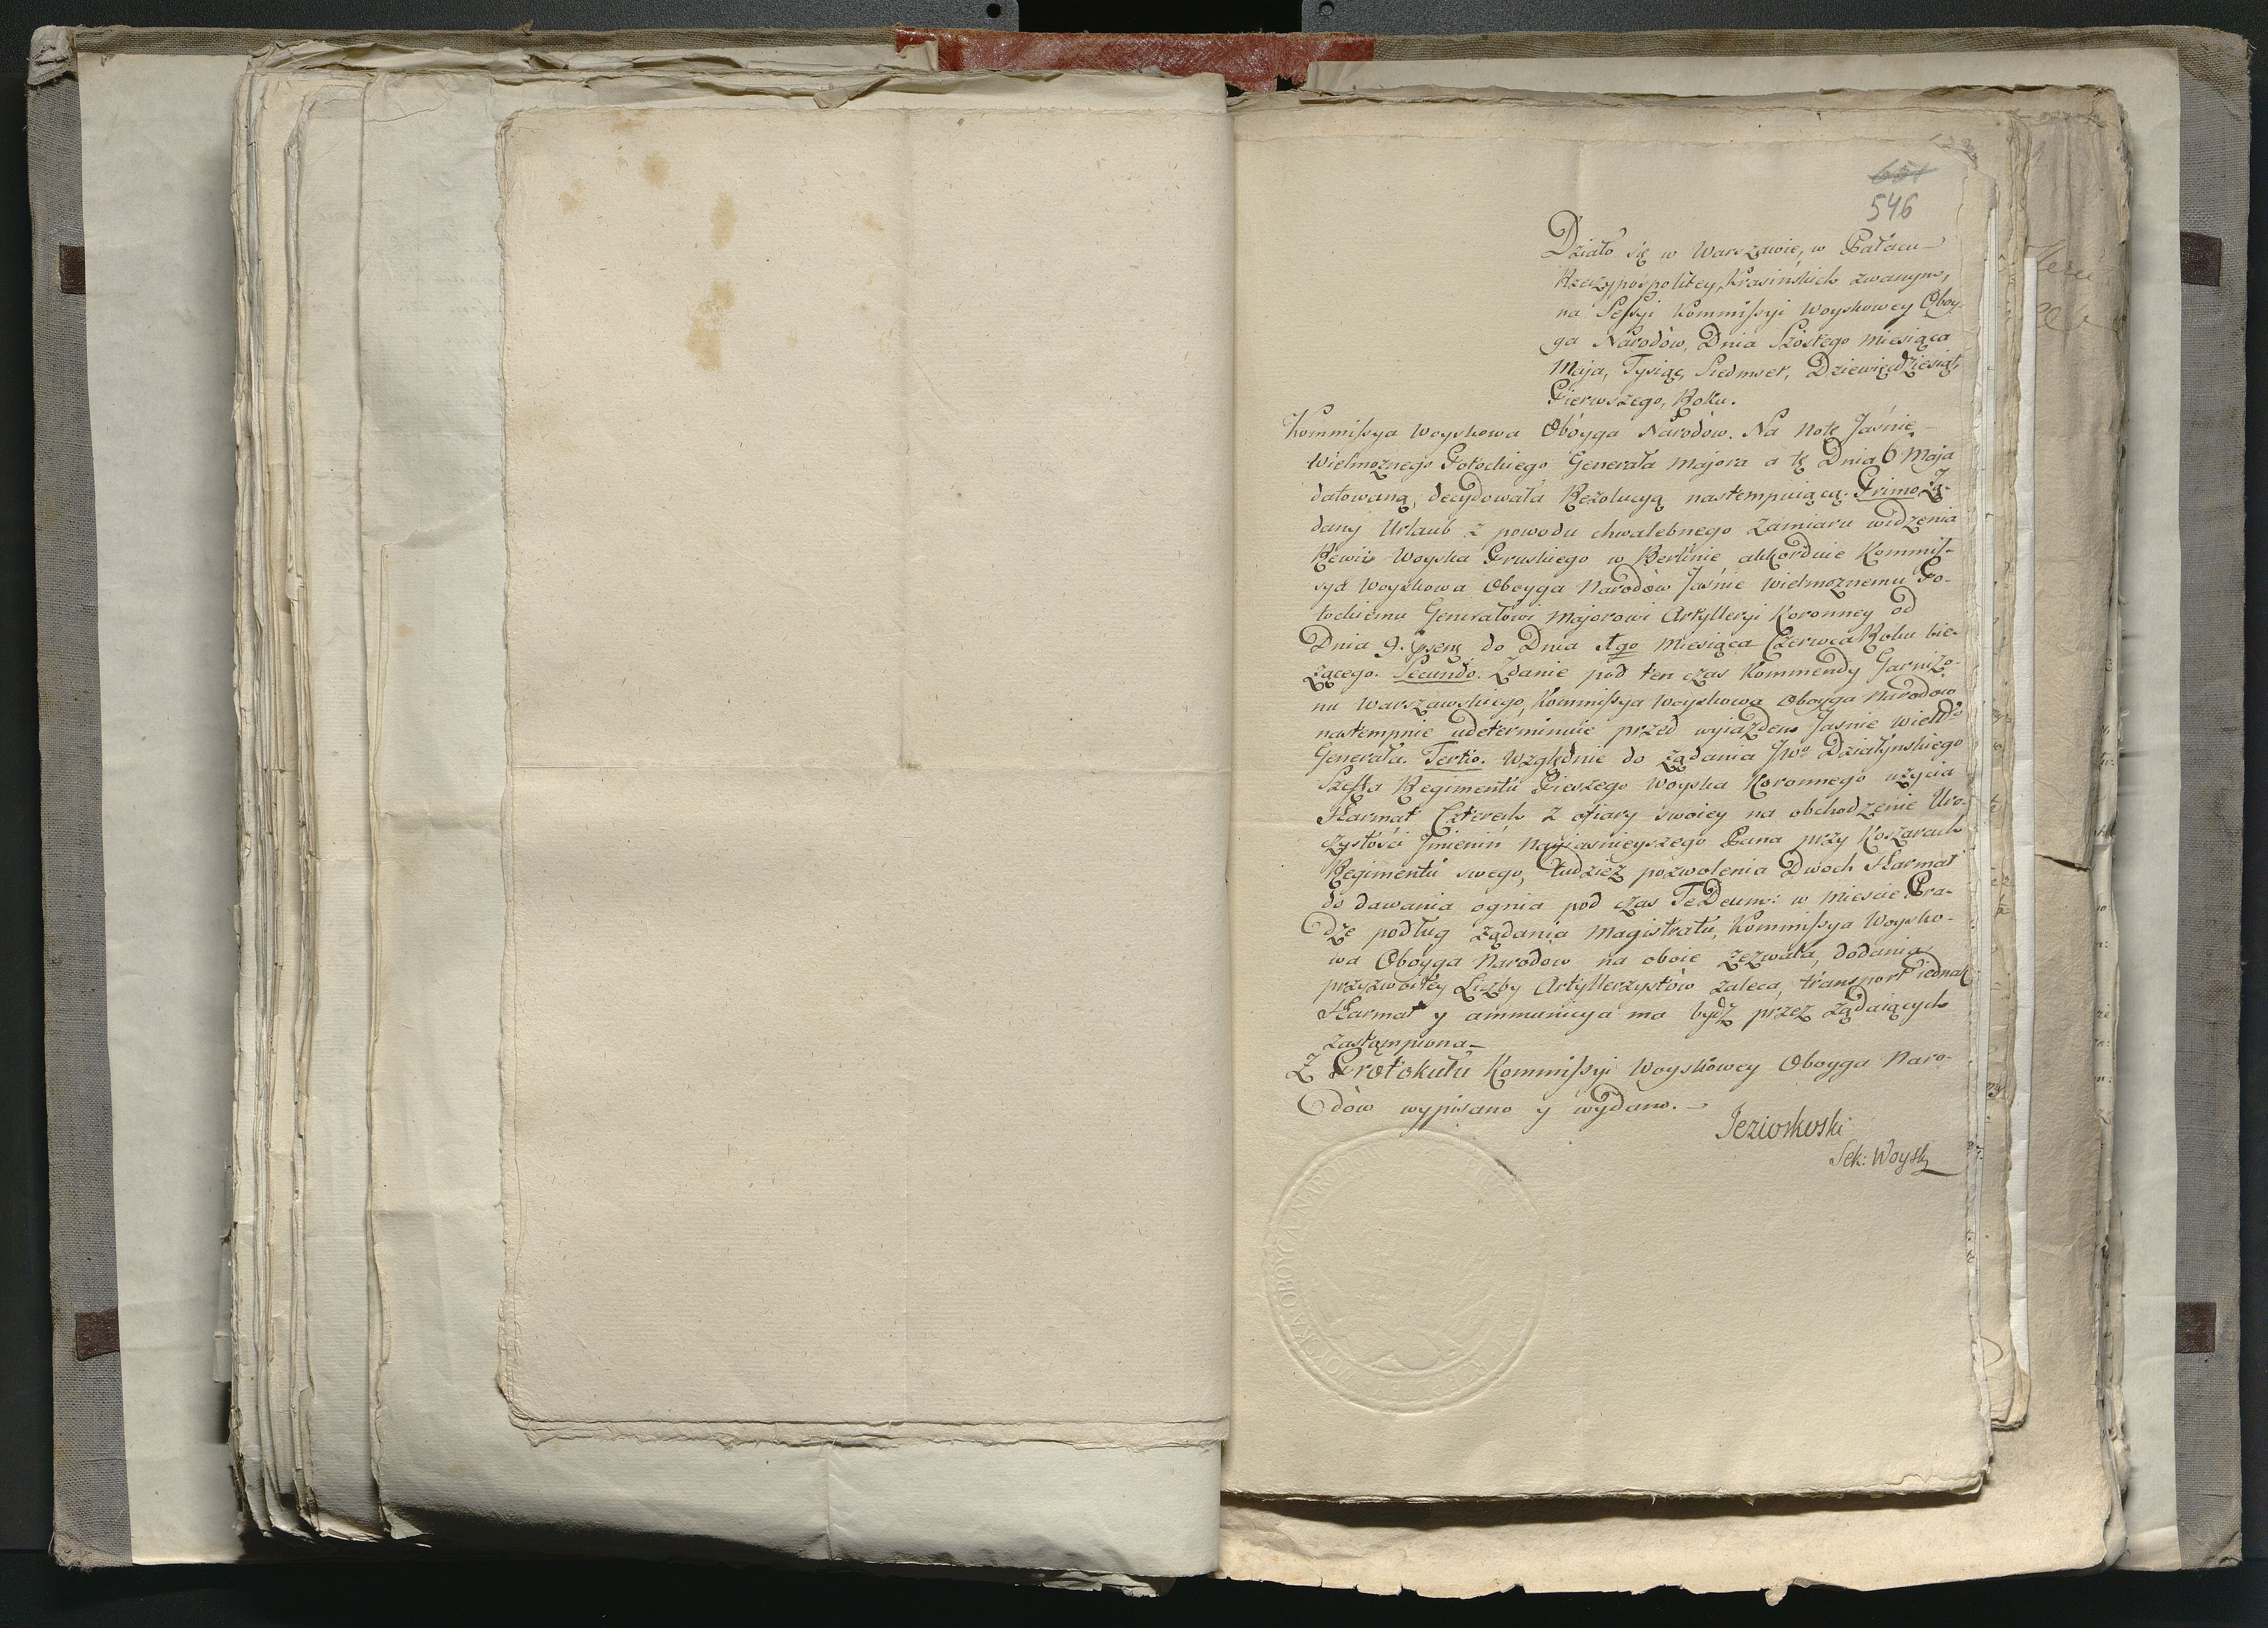 546
Działo się w Warszawie, w Pałacu
Rzeczypospolitey, Krasińskich zwanym,
na Sessyi Kommissyi Woyskowey Oboy-
ga Narodów, Dnia Szóstego Miesiąca
Maja, Tysiąc, Siedmset, Dziewięćdziesiąt,
Pierwszego, Roku.
Kommissya Woyskowa Oboyga Narodów. Na Notę Jaśnie
Wielmoznego Potockiego Generała Majora a tę Dnia 6 Maja
datowaną, decydowała Rezolucyą nastempuiącą. Primo Żą-
dany Urlaub z powodu chwalebnego zamiaru widzenia
Rewii Woyska Pruskiego w Berlinie akkorduie Kommis-
sya Woyskowa Oboyga Narodów Jaśnie Wielmoznemu Po-
tockiemu Generałowi Majorowi Artylleryi Koronney od
Dnia 9. do Dnia 1go Miesiąca Czerwca Roku bie-
żącego. Secundo. Zdanie pod ten czas Kommendy Garnizo-
nu Warszawskiego, Kommissya Woyskowa Oboyga Narodów
nastempnie udeterminuie przed wyiazdem Jaśnie Wielgo
Generała. Tertio. Względnie do żądania Jwo Działynskiego
Szeffa Regimentu Pieszego Woyska Koronnego użycia
Harmat Czterech z ofiary swoiey na obchodzenie Uro-
czystości Jmienin Nayiasnieyszego Pana przy Koszarach
Regimentu swego, tudzież pozwolenia Dwoch Harmat
do dawania ognia pod czas TeDeum: w Miescie Pra-
dze podług żądania Magistratu, Kommissya Woysko-
wa Oboyga Narodow na oboie zezwala, dodania
przyzwoitey Liczby Artyllerzystów zaleca, transport iednak
Harmat y ammunicya ma bydź przez żądaiących
zastąmpiona
Z Protokułu Kommissyi Woyskowey Oboyga Naro-
dów wypisano y wydano.
Jezioskoski
Sek: Woysk
WOYSKA OBOYGA NARODOW